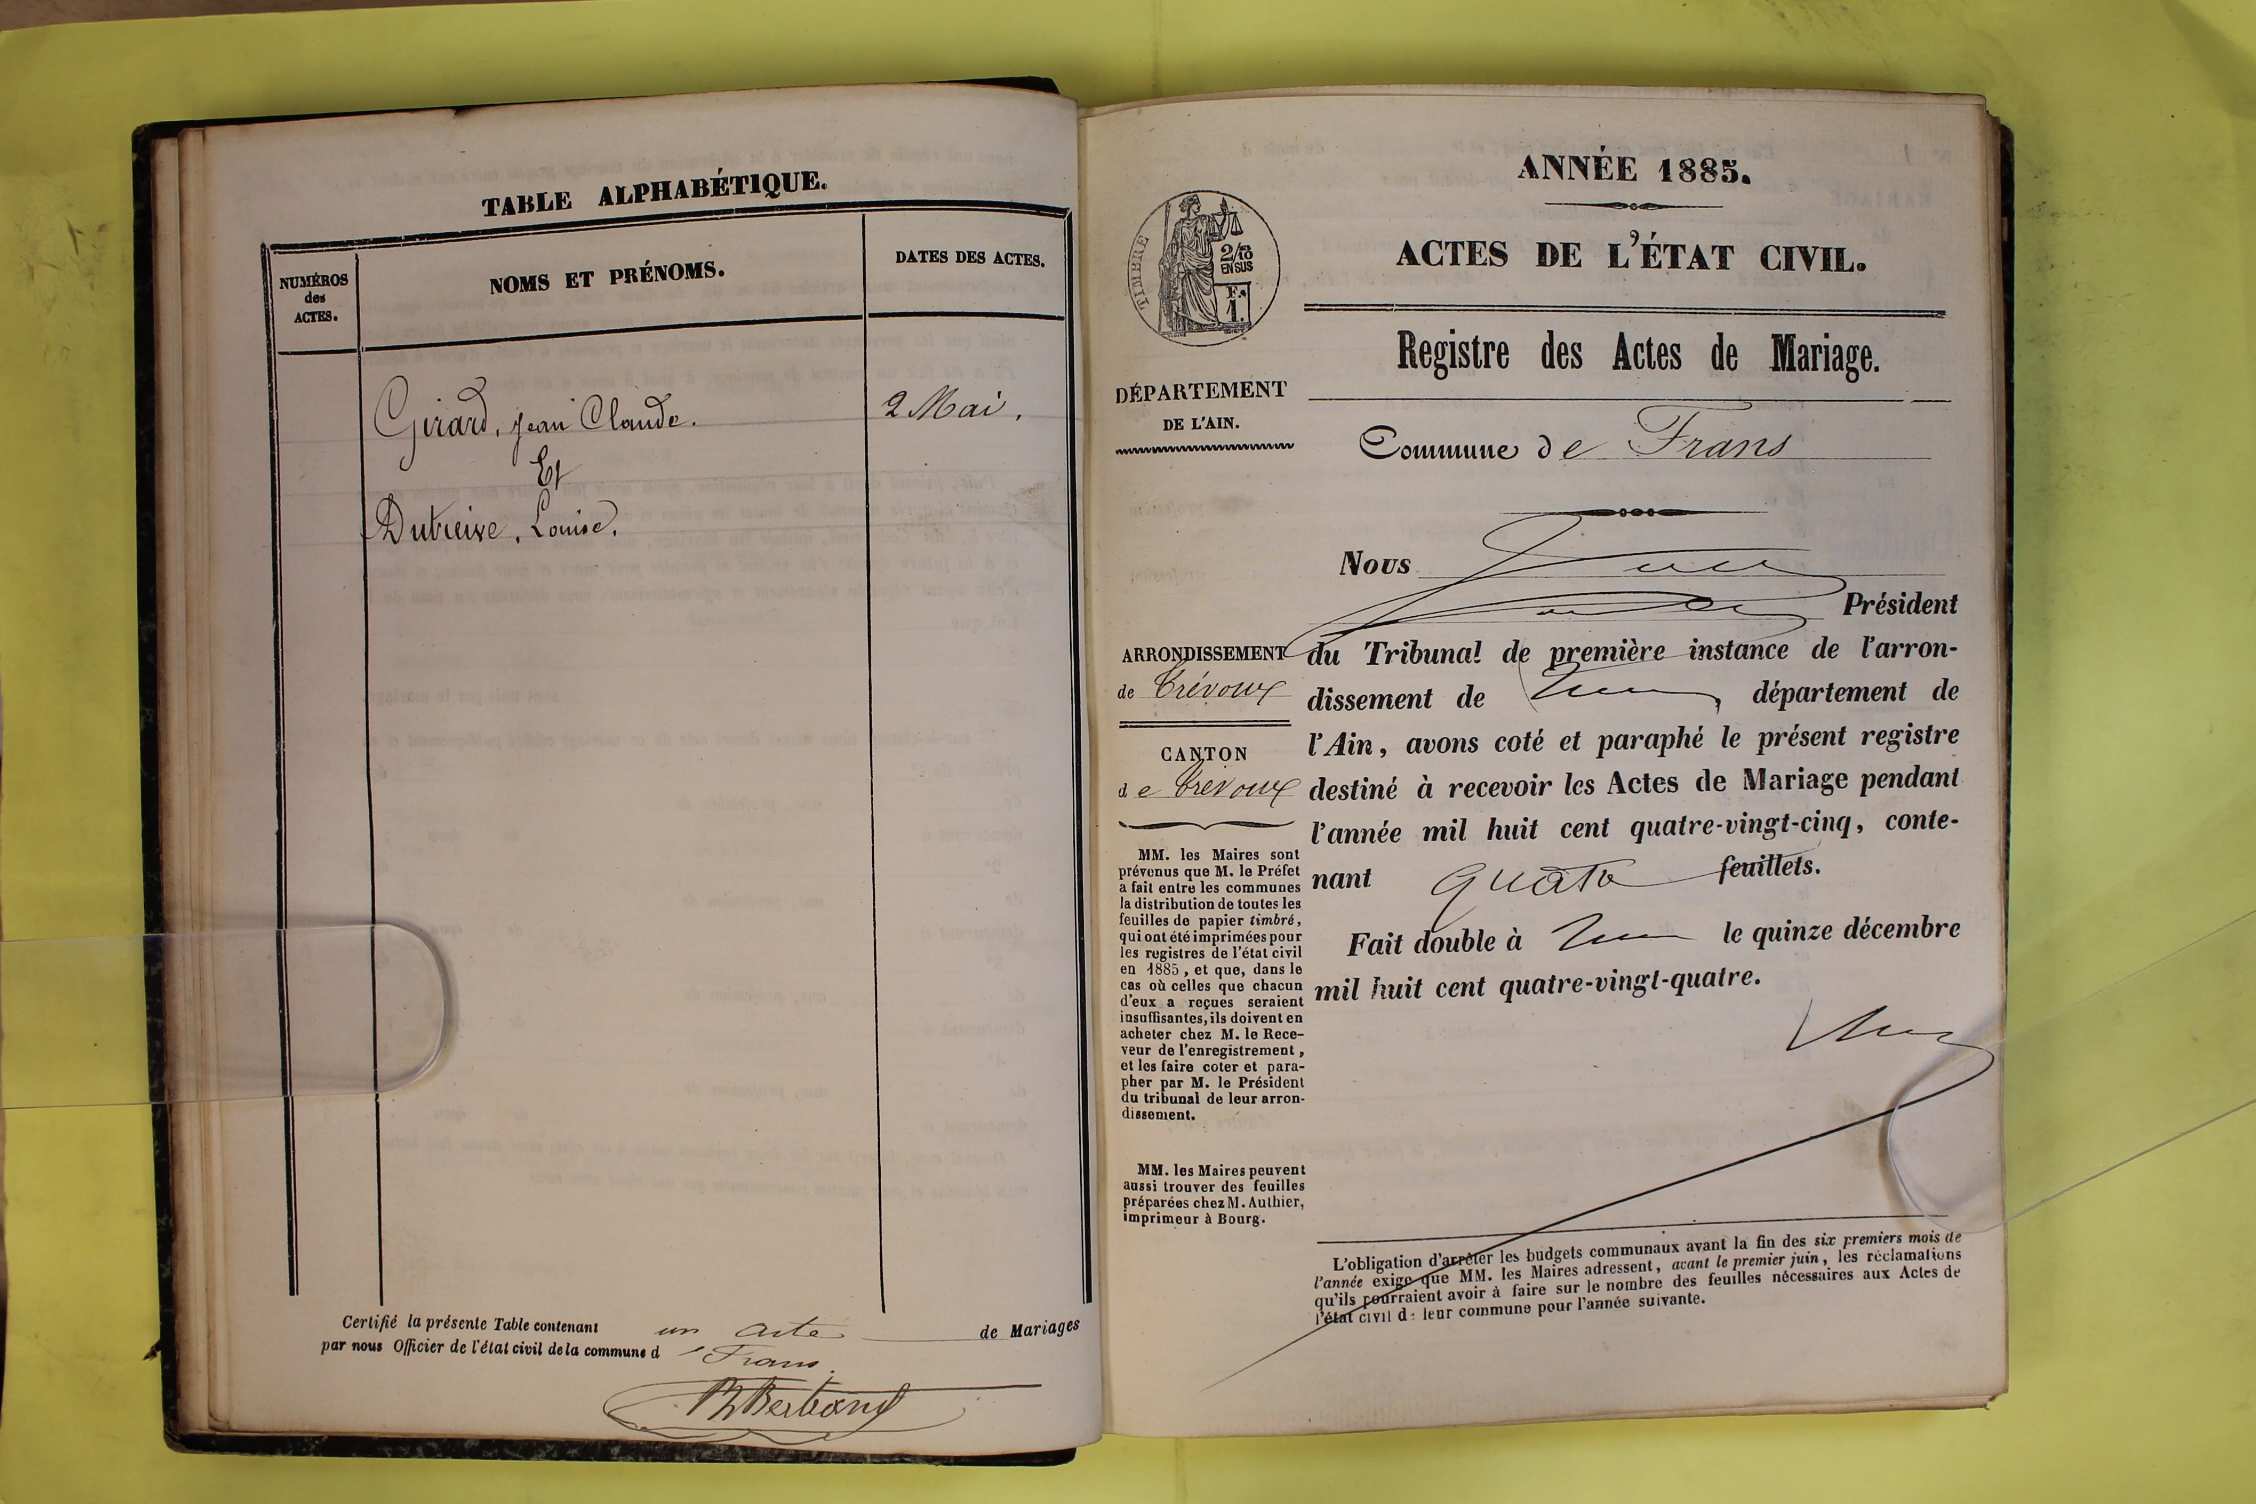 TABLE ALPHABÉTIQUE.
NUMÉROS
des
ACTES.
NOMS ET PRÉNOMS.
DATES DES ACTES.
Girard, Jean Claude.
2 Mai.
Et
Dutreive, Louise.
Certifié la présente Table contenant un acte de Mariages
par nous Officier de l'état civil de la commune de Frans.
Bertrand
ANNÉE 1885.
ACTES DE L'ÉTAT CIVIL.
TIMBRE
2/10
EN SUS
F.
1.
Registre des Actes de Mariage.
DÉPARTEMENT
DE L'AIN.
Commune de Frans
ARRONDISSEMENT
de Trévoux
CANTON
de Trévoux
MM. les Maires sont
prévenus que M. le Préfet
a fait entre les communes
la distribution de toutes les
feuilles de papier timbré,
qui ont été imprimées pour
les registres de l'état civil
en 1885, et que, dans le
cas où celles que chacun
d'eux a reçues seraient
insuffisantes, ils doivent en
acheter chez M. le Rece-
veur de l'enregistrement,
et les faire coter et para-
pher par M. le Président
du tribunal de leur arron-
dissement.
MM. les Maires peuvent
aussi trouver des feuilles
préparées chez M. Authier,
imprimeur à Bourg.
Nous
Président
du Tribunal de première instance de l'arron-
dissement de , département de
l'Ain, avons coté et paraphé le présent registre
destiné à recevoir les Actes de Mariage pendant
l'année mil huit cent quatre-vingt-cinq, conte-
nant quatre feuillets.
Fait double à le quinze décembre
mil huit cent quatre-vingt-quatre.
L'obligation d'arrêter les budgets communaux avant la fin des six premiers mois de
l'année exige que MM. les Maires adressent, avant le premier juin, les réclamations
qu'ils pourraient avoir à faire sur le nombre des feuilles nécessaires aux Actes de
l'état civil de leur commune pour l'année suivante.